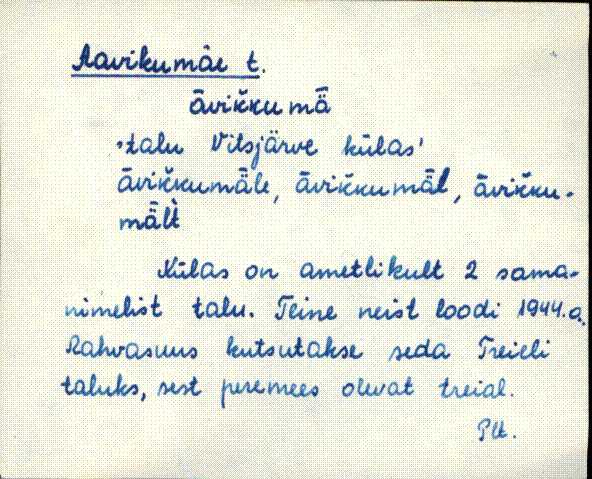 Aavikumäe t.
āvik̆kumä̆
'talu Vitsjärve külas'
āvik̆kumä̆le, āvik̆kumä̆l, āvik̆ku-
mä̆lt̀
Külas on ametlikult 2 sama-
nimelist talu. Teine neist loodi 1944.a.
Rahvasuus kutsutakse seda Treieli
taluks, sest peremees olevat treial.
Plt.